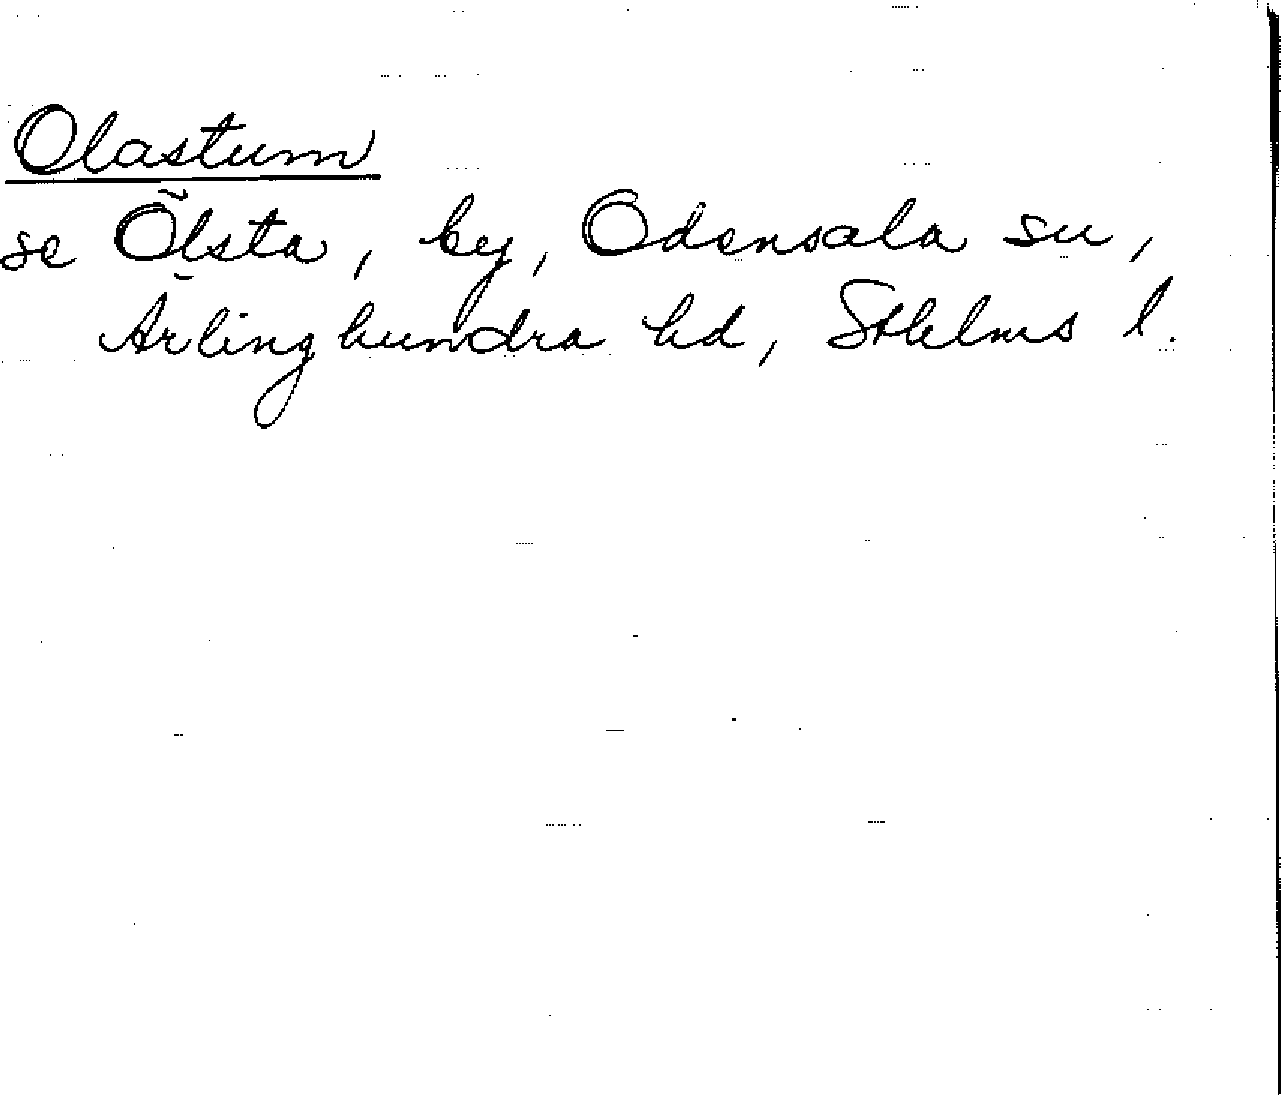 Olastum
se Ölsta, by, Odensala sn,
Ärlinghundra hd, Sthlms l.